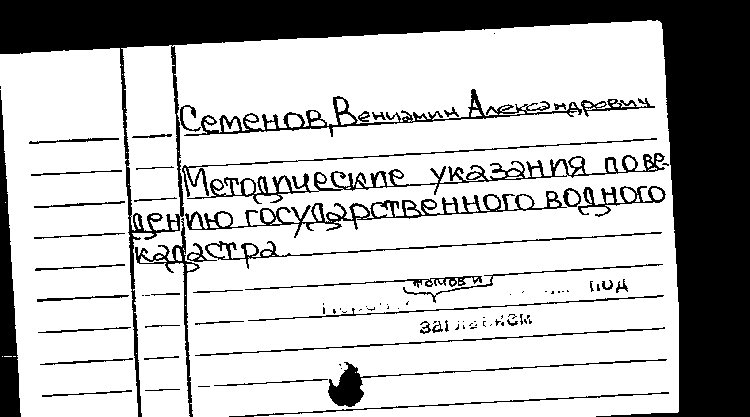 Семенов, Вениамин Александрович
Методические указания по ве-
дению государственного водного
кадастра.
томов и
под
заглавием